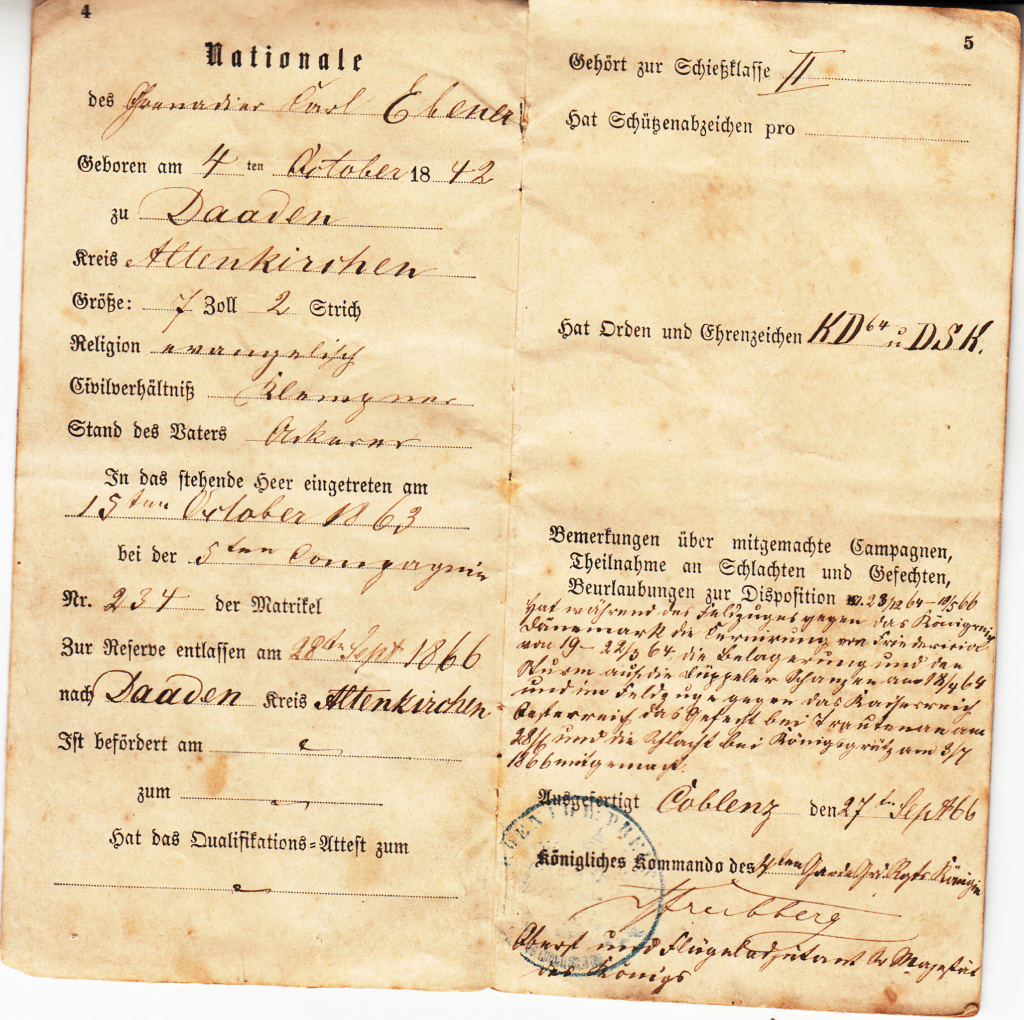 4
Nationale
des Grenadier Carl Ebener
Geboren am 4 ten October 18 42
zu Daaden
Kreis Altenkirchen
Größe: 7 Zoll 2 Strich
Religion evangelisch
Civilverhältniß Klempner
Stand des Vaters Ackerer
In das stehende Heer eingetreten am
15ten October 1863
bei der 5ten Compagnie
Nr. 234 der Matrikel
Zur Reserve entlassen am 28ten Sept 1866
nach Daaden Kreis Altenkirchen
Ist befördert am
zum
Hat das Qualifikations-Attest zum
5
Gehört zur Schießklasse II
Hat Schützenabzeichen pro
Hat Orden und Ehrenzeichen KD 64 u DSK.
Bemerkungen über mitgemachte Campagnen,
Theilnahme an Schlachten und Gefechten,
Beurlaubungen zur Disposition
Hat während des Feldzuges gegen das Königreich
Dänemark die Cernirung von Friedericia
von 19 - 22/3 64 die Belagerung und den
Sturm auf die Düppeler Schanzen am 18/4 64
und im Feldzuge gegen das Kaiserreich
Oesterreich das Gefecht bei Trautenau am
28/6 und die Schlacht bei Königsgrätz am 3/7
1866 mitgemacht.
Ausgefertigt Coblenz den 27ten Sept 66
Königliches Kommando des 4ten Garde Gr. Rgts Königin
Strubberg
Oberst und Flügeladjutant Sr Majestät
des Königs